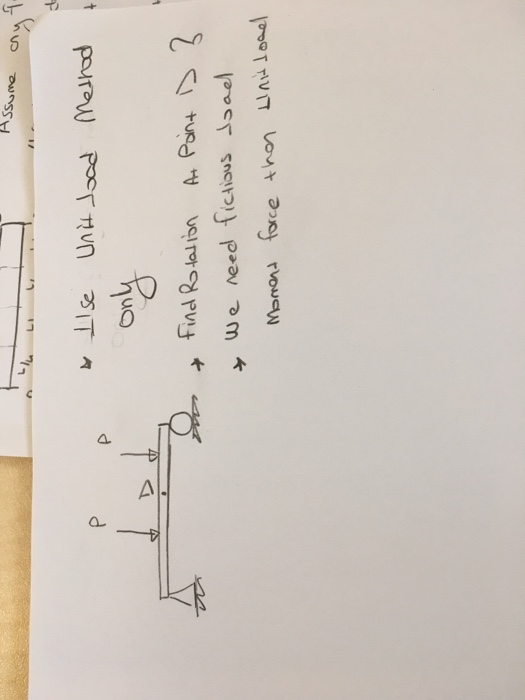 * Use Unit Load Method
only
P
D
P
* Find Rotation At Point D ?
* We need fictious load
Moment force than Unit Load
Assume any
L/4